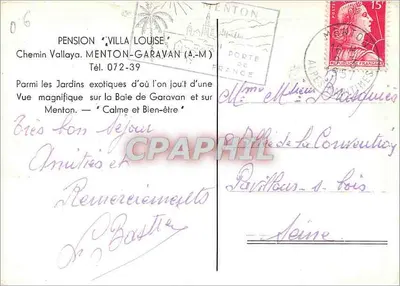 06
PENSION "VILLA LOUISE"
Chemin Vallaya. MENTON-GARAVAN (A.-M.)
Tél. 072-39
Parmi les Jardins exotiques d'où l'on jouit d'une
Vue magnifique sur la Baie de Garavan et sur
Menton. — "Calme et Bien-être"
MENTON
PORTE
DE
FRANCE
MENTON
15F
Très bon séjour
Amitiés et
Remerciements
Bastia
Mme Mr
8 Allée de la Convention
Pavillons-s-bois
Seine
CPAPHIL